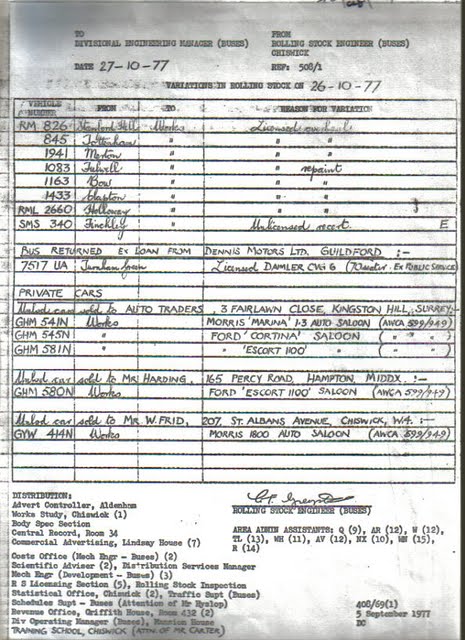 TO FROM
DIVISIONAL ENGINEERING MANAGER (BUSES) ROLLING STOCK ENGINEER (BUSES)
CHISWICK
DATE 27-10-77 REF: 508/1
VARIATIONS IN ROLLING STOCK ON 26-10-77
VEHICLE NUMBER FROM TO REASON FOR VARIATION
RM 826 Stamford Hill Works Licensed overhaul
845 Tottenham " " "
1941 Merton " " "
1083 Fulwell " " repaint
1163 Bow " " "
1433 Clapton " " "
RML 2660 Holloway " " "
SMS 340 Finchley " Unlicensed recert. E
BUS RETURNED EX LOAN FROM DENNIS MOTORS LTD, GUILDFORD :-
7517 UA Turnham Green Licensed DAIMLER CVG 6 (70 seater. EX PUBLIC SERVICE)
PRIVATE CARS
car sold to AUTO TRADERS, 3 FAIRLAWN CLOSE, KINGSTON HILL, SURREY:-
GHM 541N Works MORRIS 'MARINA' 1·3 AUTO SALOON (AWCA 599/949)
GHM 545N " FORD 'CORTINA' SALOON ( " " )
GHM 581N " " 'ESCORT 1100' " ( " " )
car sold to MR. HARDING, 165 PERCY ROAD, HAMPTON, MIDDX. :-
GHM 580N Works FORD 'ESCORT 1100' SALOON (AWCA 599/949)
car sold to MR. W. FRID, 207, ST. ALBANS AVENUE, CHISWICK, W.4. :-
GYW 414N Works MORRIS 1800 AUTO SALOON (AWCA 599/949)
DISTRIBUTION:
Advert Controller, Aldenham
Works Study, Chiswick (1)
Body Spec Section
Central Record, Room 34
Commercial Advertising, Lindsay House (7)
Costs Office (Mech Engr - Buses) (2)
Scientific Adviser (2), Distribution Services Manager
Mech Engr (Development - Buses) (3)
R S Licensing Section (5), Rolling Stock Inspection
Statistical Office, Chiswick (2), Traffic Supt (Buses)
Schedules Supt - Buses (Attention of Mr Hyslop)
Revenue Office, Griffith House, Room 432 (2)
Div Operating Manager (Buses), Mansion House
TRAINING SCHOOL, CHISWICK (ATTN. OF MR CARTER)
ROLLING STOCK ENGINEER (BUSES)
AREA ADMIN ASSISTANTS: Q (9), AR (12), W (12),
TL (13), WH (11), AV (12), NX (10), WN (15),
R (14)
408/69(1)
5 September 1977
DG